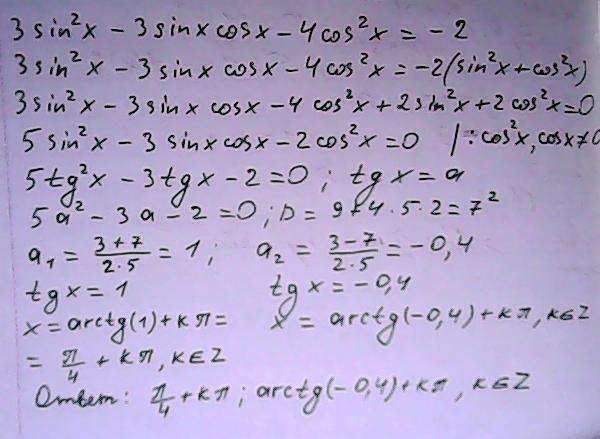 3 sin²x − 3 sin x cos x − 4 cos²x = −2
3 sin²x − 3 sin x cos x − 4 cos²x = −2(sin²x + cos²x)
3 sin²x − 3 sin x cos x − 4 cos²x + 2 sin²x + 2 cos²x = 0
5 sin²x − 3 sin x cos x − 2 cos²x = 0 | : cos²x, cos x ≠ 0
5 tg²x − 3 tg x − 2 = 0 ; tg x = a
5a² − 3a − 2 = 0 ; D = 9 + 4 · 5 · 2 = 7²
a₁ = (3 + 7)/(2 · 5) = 1 ; a₂ = (3 − 7)/(2 · 5) = −0,4
tg x = 1 tg x = −0,4
x = arctg(1) + kπ = x = arctg(−0,4) + kπ, k ∈ Z
= π/4 + kπ, k ∈ Z
Ответ: π/4 + kπ ; arctg(−0,4) + kπ, k ∈ Z